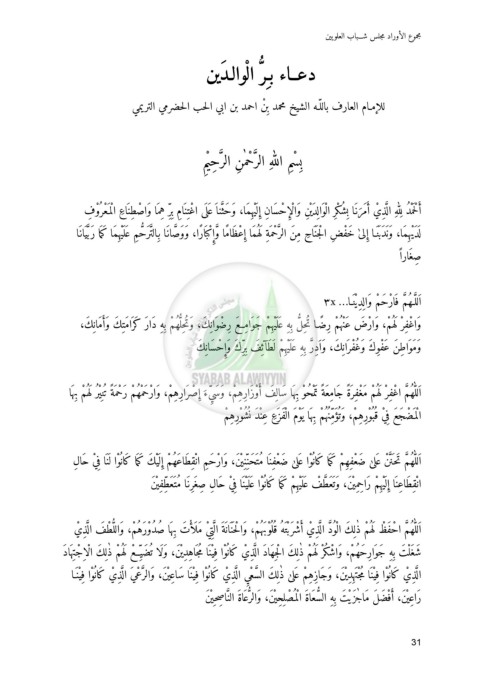 مجموع الأوراد مجلس شباب العلويين
دعاء بِرُّ الْوالدَين
للإمام العارف بالله الشيخ محمد بنْ احمد بن ابي الحب الحضرمي التريمي
بِسْمِ اللهِ الرَّحْمٰنِ الرَّحِيْمِ
أَلْحَمْدُ لِلهِ الَّذِيْ أَمَرَنَا بِشُكْرِ الْوَالِدَيْنِ وَالْإِحْسَانِ إِلَيْهِمَا، وَحَثَّنَا عَلَى اغْتِنَامِ بِرِّ هِمَا وَاصْطِنَاعِ الْمَعْرُوْفِ
لَدَيْهِمَا، وَنَدَبَنَا إِلىٰ خَفْضِ الْجَنَاحِ مِنَ الرَّحْمَةِ لَهُمَا إِعْظَامًا وَّإِكْبَارًا، وَوَصَّانَا بِالتَّرَحُّمِ عَلَيْهِمَا كَمَا رَبَّيَانَا
صِغَاراً
اَللّٰهُمَّ فَارْحَمْ وَالِدِيْنَا... ٣x
وَاغْفِرْ لَهُمْ، وَارْضَ عَنْهُمْ رِضًا تُحِلُّ بِهِ عَلَيْهِمْ جَوَامِعَ رِضْوَانِكَ، وَتُحِلُّهُمْ بِهِ دَارَ كَرَامَتِكَ وَأَمَانِكَ،
وَمَوَاطِنَ عَفْوِكَ وَغُفْرَانِكَ، وَأَدِرَّ بِهِ عَلَيْهِمْ لَطَائِفَ بِرِّكَ وَإِحْسَانِكَ
SYABAB ALAWIYYIN
اَللّٰهُمَّ اغْفِرْ لَهُمْ مَغْفِرَةً جَامِعَةً تَمْحُوْ بِهَا سَالِفَ أَوْزَارِهِمْ، وَسَيِّءَ إِصْرَارِهِمْ، وَارْحَمْهُمْ رَحْمَةً تُنِيْرُ لَهُمْ بِهَا
الْمَضْجَعَ فِيْ قُبُوْرِهِمْ، وَتُؤَمِّنُهُمْ بِهَا يَوْمَ الْفَزَعِ عِنْدَ نُشُوْرِهِمْ
اَللّٰهُمَّ تَحَنَّنْ عَلىٰ ضَعْفِهِمْ كَمَا كَانُوْا عَلىٰ ضَعْفِنَا مُتَحَنِّنِيْنَ، وَارْحَمِ انْقِطَاعَهُمْ إِلَيْكَ كَمَا كَانُوْا لَنَا فِيْ حَالِ
انْقِطَاعِنَا إِلَيْهِمْ رَاحِمِيْنَ، وَتَعَطَّفْ عَلَيْهِمْ كَمَا كَانُوْا عَلَيْنَا فِيْ حَالِ صِغَرِنَا مُتَعَطِّفِيْنَ
اَللّٰهُمَّ احْفَظْ لَهُمْ ذٰلِكَ الْوُدَّ الَّذِيْ أَشْرَبْتَهُ قُلُوْبَهُمْ، وَالْحَنَانَةَ الَّتِيْ مَلَأْتَ بِهَا صُدُوْرَهُمْ، وَاللُّطْفَ الَّذِيْ
شَغَلْتَ بِهِ جَوَارِحَهُمْ، وَاشْكُرْ لَهُمْ ذٰلِكَ الْجِهَادَ الَّذِيْ كَانُوْا فِيْنَا مُجَاهِدِيْنَ، وَلَا تُضَيِّعْ لَهُمْ ذٰلِكَ الْاِجْتِهَادَ
الَّذِيْ كَانُوْا فِيْنَا مُجْتَهِدِيْنَ، وَجَازِهِمْ عَلىٰ ذٰلِكَ السَّعْيِ الَّذِيْ كَانُوْا فِيْنَا سَاعِيْنَ، وَالرَّعْيِ الَّذِيْ كَانُوْا فِيْنَا
رَاعِيْنَ، أَفْضَلَ مَاجَزَيْتَ بِهِ السُّعَاةَ الْمُصْلِحِيْنَ، وَالرُّعَاةَ النَّاصِحِيْنَ
31